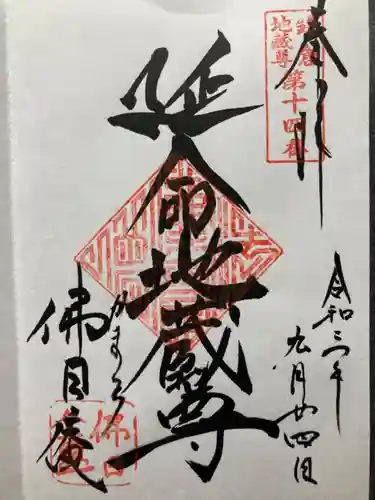 奉拝
鎌倉
地蔵尊
第十四番
令和三年
九月廿四日
延命地蔵尊
かまくら
佛日庵
佛日庵